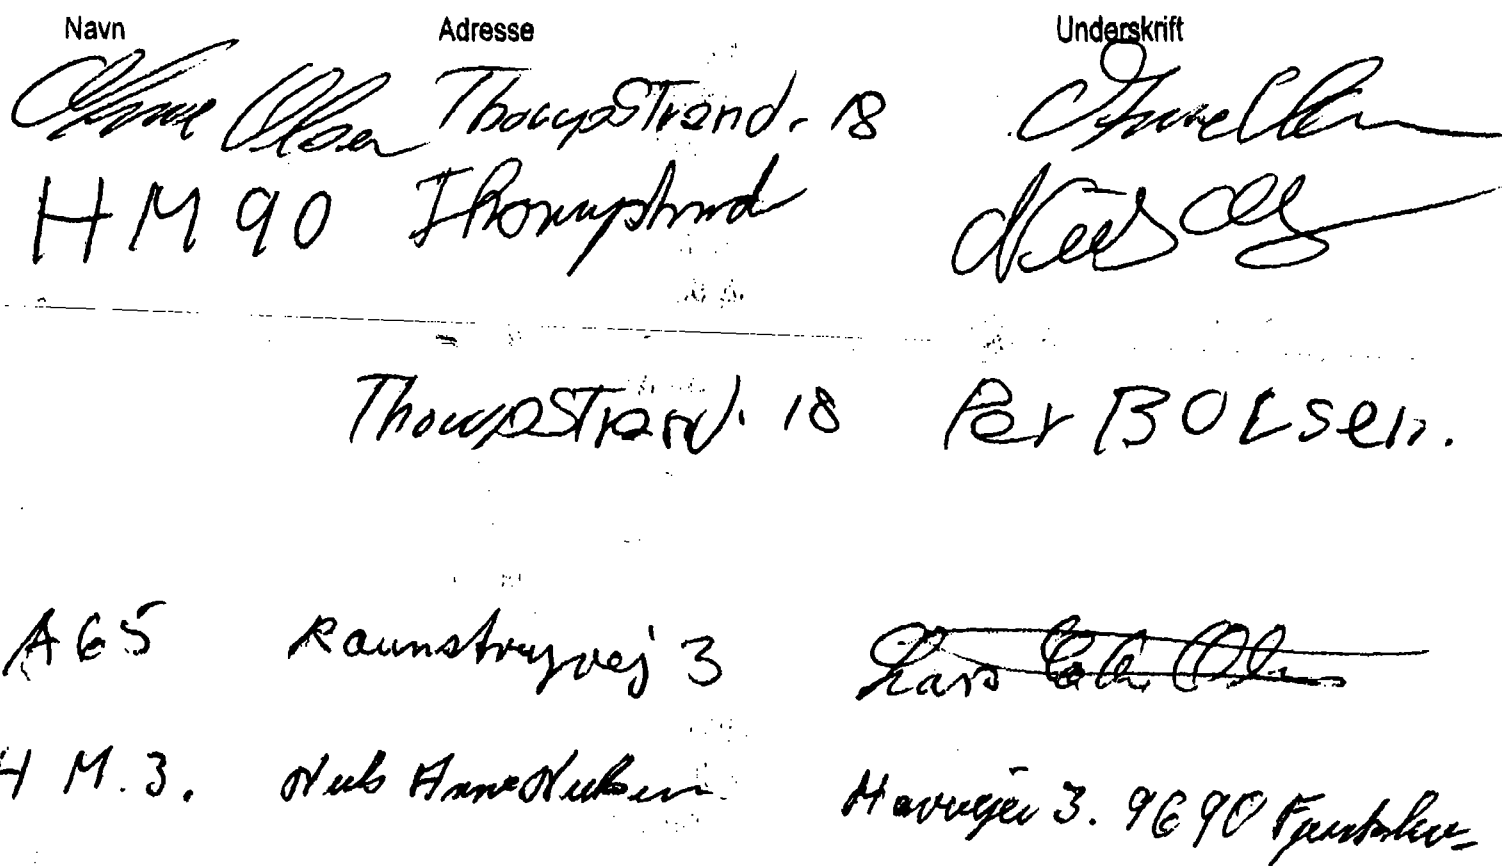 Navn Adresse Underskrift
Olsen ThorupStrand. 18
HM 90 Thorupstrand Niels
ThorupStrand. 18 Per B OLsen.
A65 Raunstrupvej 3 Lars Olsen
HM.3. Niels Arne Nielsen Havvejen 3. 9690 Fjerritslev